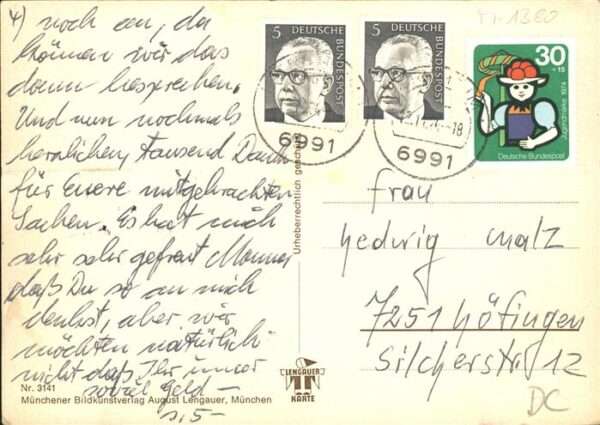 4) noch an, da
können wir das
dann besprechen.
Und nun nochmals
herzlichen, tausend Dank
für Euere mitgebrachten
Sachen. Es hat mich
sehr sehr gefreut Mama
daß Du so an mich
denkst, aber wir
möchten natürlich
nicht daß Ihr immer
soviel Geld –
s. 5 –
Nr. 3141
Münchener Bildkunstverlag August Lengauer, München
Urheberrechtlich geschützt
LENGAUER
KARTE
5
DEUTSCHE BUNDESPOST
5
DEUTSCHE BUNDESPOST
30
+15
Jugendmarke 1974
Deutsche Bundespost
6991
6991
-18
Frau
Hedwig Malz
7251 Höfingen
Silcherstr 12
DC